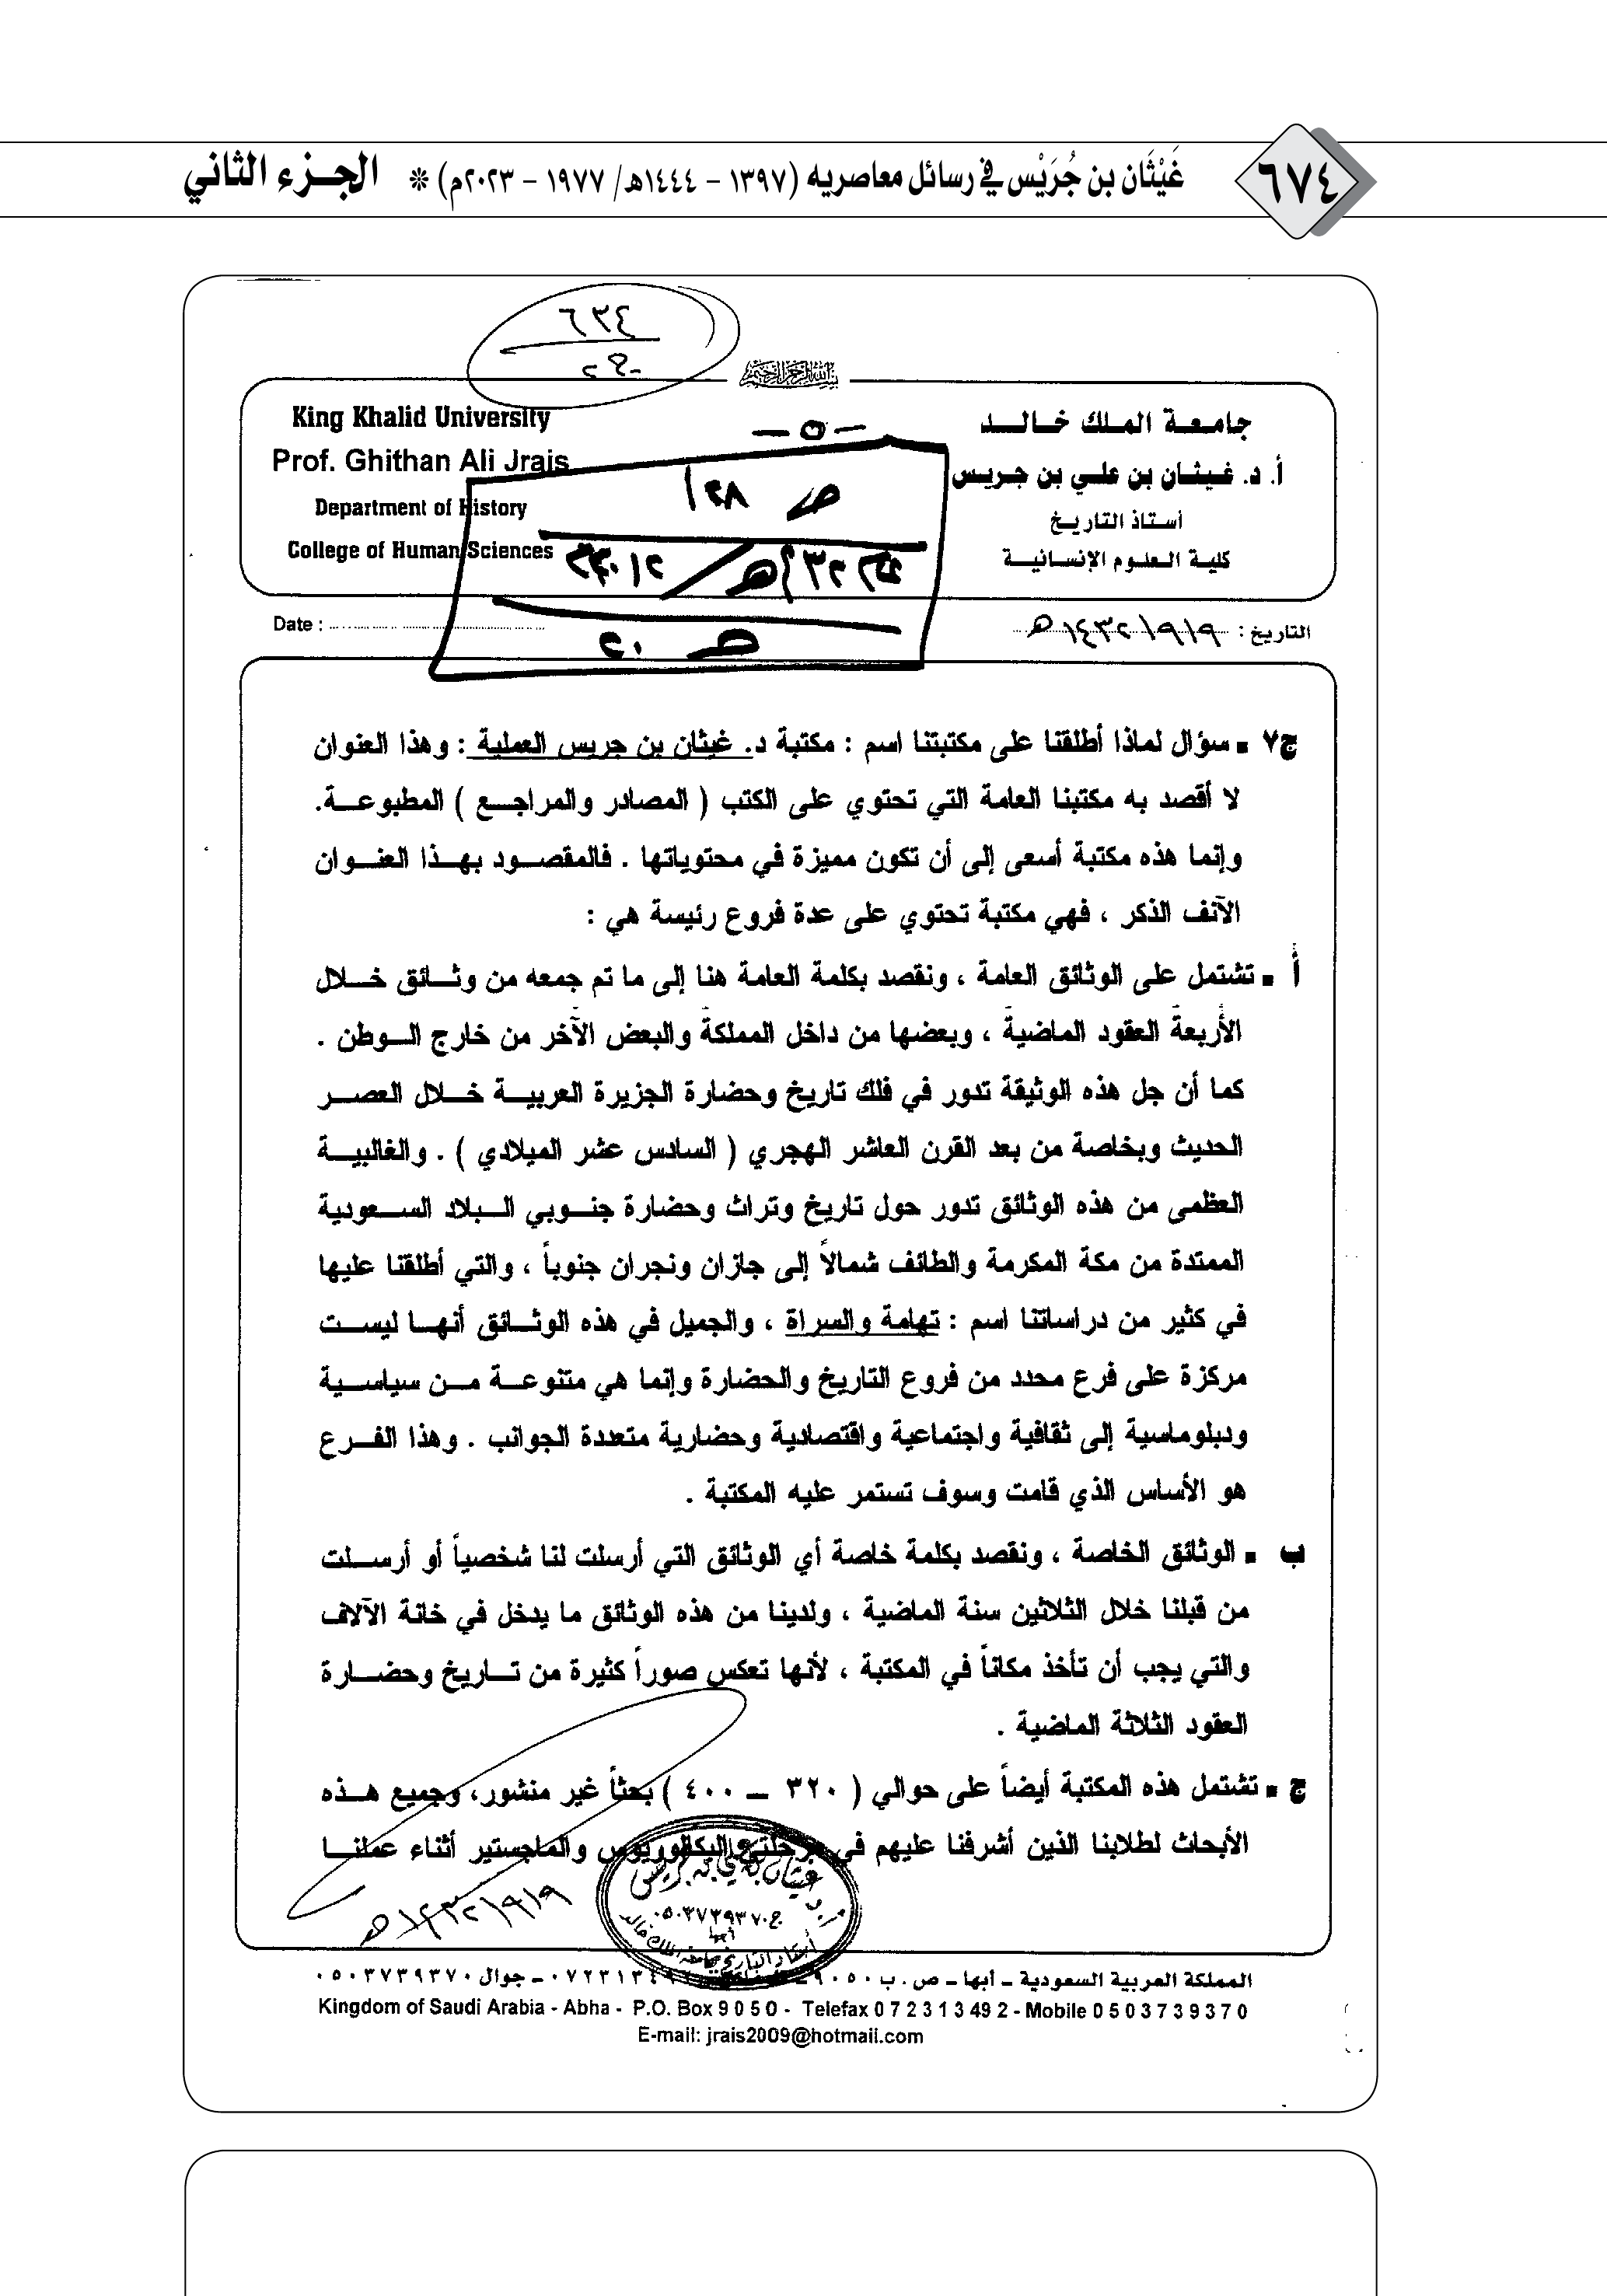 ٦٧٤
غَيْثَان بن جُرَيْس في رسائل معاصريه (١٣٩٧ - ١٤٤٤هـ/ ١٩٧٧ - ٢٠٢٣م) * الجزء الثاني
٦٣٤
بسم الله الرحمن الرحيم
جامعة الملك خالد
أ. د. غيثان بن علي بن جريس
أستاذ التاريخ
كلية العلوم الإنسانية
King Khalid University
Prof. Ghithan Ali Jrais
Department of History
College of Human Sciences
- ٥ -
التاريخ : ١٤٣٢/٩/٩هـ
Date :
ج٧ - سؤال لماذا أطلقنا على مكتبتنا اسم : مكتبة د. غيثان بن جريس العملية : وهذا العنوان
لا أقصد به مكتبنا العامة التي تحتوي على الكتب ( المصادر والمراجع ) المطبوعة.
وإنما هذه مكتبة أسعى إلى أن تكون مميزة في محتوياتها . فالمقصود بهذا العنوان
الآنف الذكر ، فهي مكتبة تحتوي على عدة فروع رئيسة هي :
أ - تشتمل على الوثائق العامة ، ونقصد بكلمة العامة هنا إلى ما تم جمعه من وثائق خلال
الأربعة العقود الماضية ، وبعضها من داخل المملكة والبعض الآخر من خارج الوطن .
كما أن جل هذه الوثيقة تدور في فلك تاريخ وحضارة الجزيرة العربية خلال العصر
الحديث وبخاصة من بعد القرن العاشر الهجري ( السادس عشر الميلادي ) . والغالبية
العظمى من هذه الوثائق تدور حول تاريخ وتراث وحضارة جنوبي البلاد السعودية
الممتدة من مكة المكرمة والطائف شمالاً إلى جازان ونجران جنوباً ، والتي أطلقنا عليها
في كثير من دراساتنا اسم : تهامة والسراة ، والجميل في هذه الوثائق أنها ليست
مركزة على فرع محدد من فروع التاريخ والحضارة وإنما هي متنوعة من سياسية
ودبلوماسية إلى ثقافية واجتماعية واقتصادية وحضارية متعددة الجوانب . وهذا الفرع
هو الأساس الذي قامت وسوف تستمر عليه المكتبة .
ب - الوثائق الخاصة ، ونقصد بكلمة خاصة أي الوثائق التي أرسلت لنا شخصياً أو أرسلت
من قبلنا خلال الثلاثين سنة الماضية ، ولدينا من هذه الوثائق ما يدخل في خانة الآلاف
والتي يجب أن تأخذ مكاناً في المكتبة ، لأنها تعكس صوراً كثيرة من تاريخ وحضارة
العقود الثلاثة الماضية .
ج - تشتمل هذه المكتبة أيضاً على حوالي ( ٣٢٠ – ٤٠٠ ) بحثاً غير منشور، وجميع هذه
الأبحاث لطلابنا الذين أشرفنا عليهم في مرحلتي البكالوريوس والماجستير أثناء عملنا
١٤٣٢/٩/٩هـ
غيثان بن علي بن جريس
ج.٠٥٠٣٧٣٩٣٧٠
أبها
أستاذ التاريخ بجامعة الملك خالد
المملكة العربية السعودية – أبها – ص . ب ٩٠٥٠ – ٠٧٢٣١٣٤٩٢ – جوال ٠٥٠٣٧٣٩٣٧٠
Kingdom of Saudi Arabia - Abha - P.O. Box 9 0 5 0 - Telefax 0 7 2 3 1 3 49 2 - Mobile 0 5 0 3 7 3 9 3 7 0
E-mail: jrais2009@hotmail.com